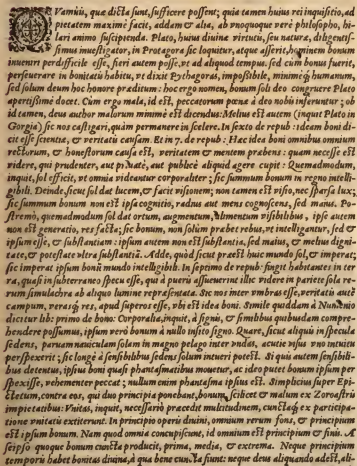 QVamuis, quæ dicta sunt, sufficere possent; quia tamen huius rei inquisitio, ad
pietatem maximè facit, addam & alia, ab vnoquoque verè philosopho, hi-
lari animo suscipienda. Plato, huius diuinæ virtutis, seu natura, diligentis-
simus inuestigator, in Protagora sic loquitur, atque asserit, hominem bonum
inueniri perdifficile esse, fieri autem posse, vt ad aliquod tempus. sed cùm bonus fuerit,
perseuerare in bonitatis habitu, vt dixit Pythagoras, impossibile, minimeq́; humanum,
sed solum deum hoc honore præditum: hoc ergo nomen, bonum soli deo congruere Plato
apertissimè docet. Cùm ergo mala, id est, peccatorum pœnæ à deo nobis inferuntur; ob
id tamen, deus author malorum minimè est dicendus: Melius est autem (inquit Plato in
Gorgia) sic nos castigari, quàm permanere in scelere. In sexto de repub: ideam boni di-
cit esse scientiæ, & veritatis causam. Et in 7. de repub: Hæc idea boni omnibus omnium
rectorum, & honestorum causa est, veritatem & mentem præbens: quam necesse est
videre, qui prudenter, aut priuatè, aut publicè aliquid agere cupit: Quemadmodum,
inquit, sol efficit, vt omnia videantur corporaliter; sic summum bonum in regno intelli-
gibili. Deinde, sicut sol dat lucem, & facit visionem; non tamen est visio, nec sparsa lux;
sic summum bonum non est ipsa cognitio, radius aut mens cognoscens, sed maius. Po-
stremò, quemadmodum sol dat ortum, augmentum, alimentum visibilibus, ipse autem
non est generatio, res facta; sic bonum, non solùm præbet rebus, vt intelligantur, sed &
ipsum esse, & substantiam: ipsum autem non est substantia, sed maius, & melius digni-
tate, & potestate vltra substantiã. Adde, quòd sicut præest huic mundo sol, & imperat;
sic imperat ipsum bonũ mundo intelligibili. In septimo de repub: fingit habitantes in ter
ra, quasi in subterraneo specu esse, qui à pueris assueuerint illic videre in pariete sola re-
rum simulachra ab aliquo lumine repræsentata. Ita nos inter vmbras esse, veritatis autē
campum, verasq́; res, apud superos esse, vbi est idea boni. Simile quoddam à Numenio
dicitur lib: primo de bono: Corporalia, inquit, à signis, & similibus quibusdam compre-
hendere possumus, ipsum verò bonum à nullo insito signo. Quare, sicut aliquis in specula
sedens, paruam nauiculam solam in magno pelago inter vndas, acutis visu vno intuitu
perspexerit; sic longè à sensibilibus sedens solum intueri potest. Si quis autem sensibili-
bus detentus, ipsius boni quasi phantasmatibus mouetur, ac ideo putet bonum ipsum per
spexisse, vehementer peccat; nullum enim phantasma ipsius est. Simplicius super Epi-
ctetum, contra eos, qui duo principia ponebant, bonum scilicet & malum ex Zoroastris
impietatibus: Vnitas, inquit, necessariò præcedit multitudinem, cunctaq́; ex participa-
tione vnitatis extiterunt. In principio operis diuini, omnium rerum fons, & principium
est ipsum bonum. Nam quod omnia concupiscunt, id omnium est principium & finis. A
seipso quoque bonum cuncta producit, prima, media, & extrema. Neque principium
temporis habet bonitas diuina, qua bene cuncta fiunt: neque deus aliquando adest, ali-